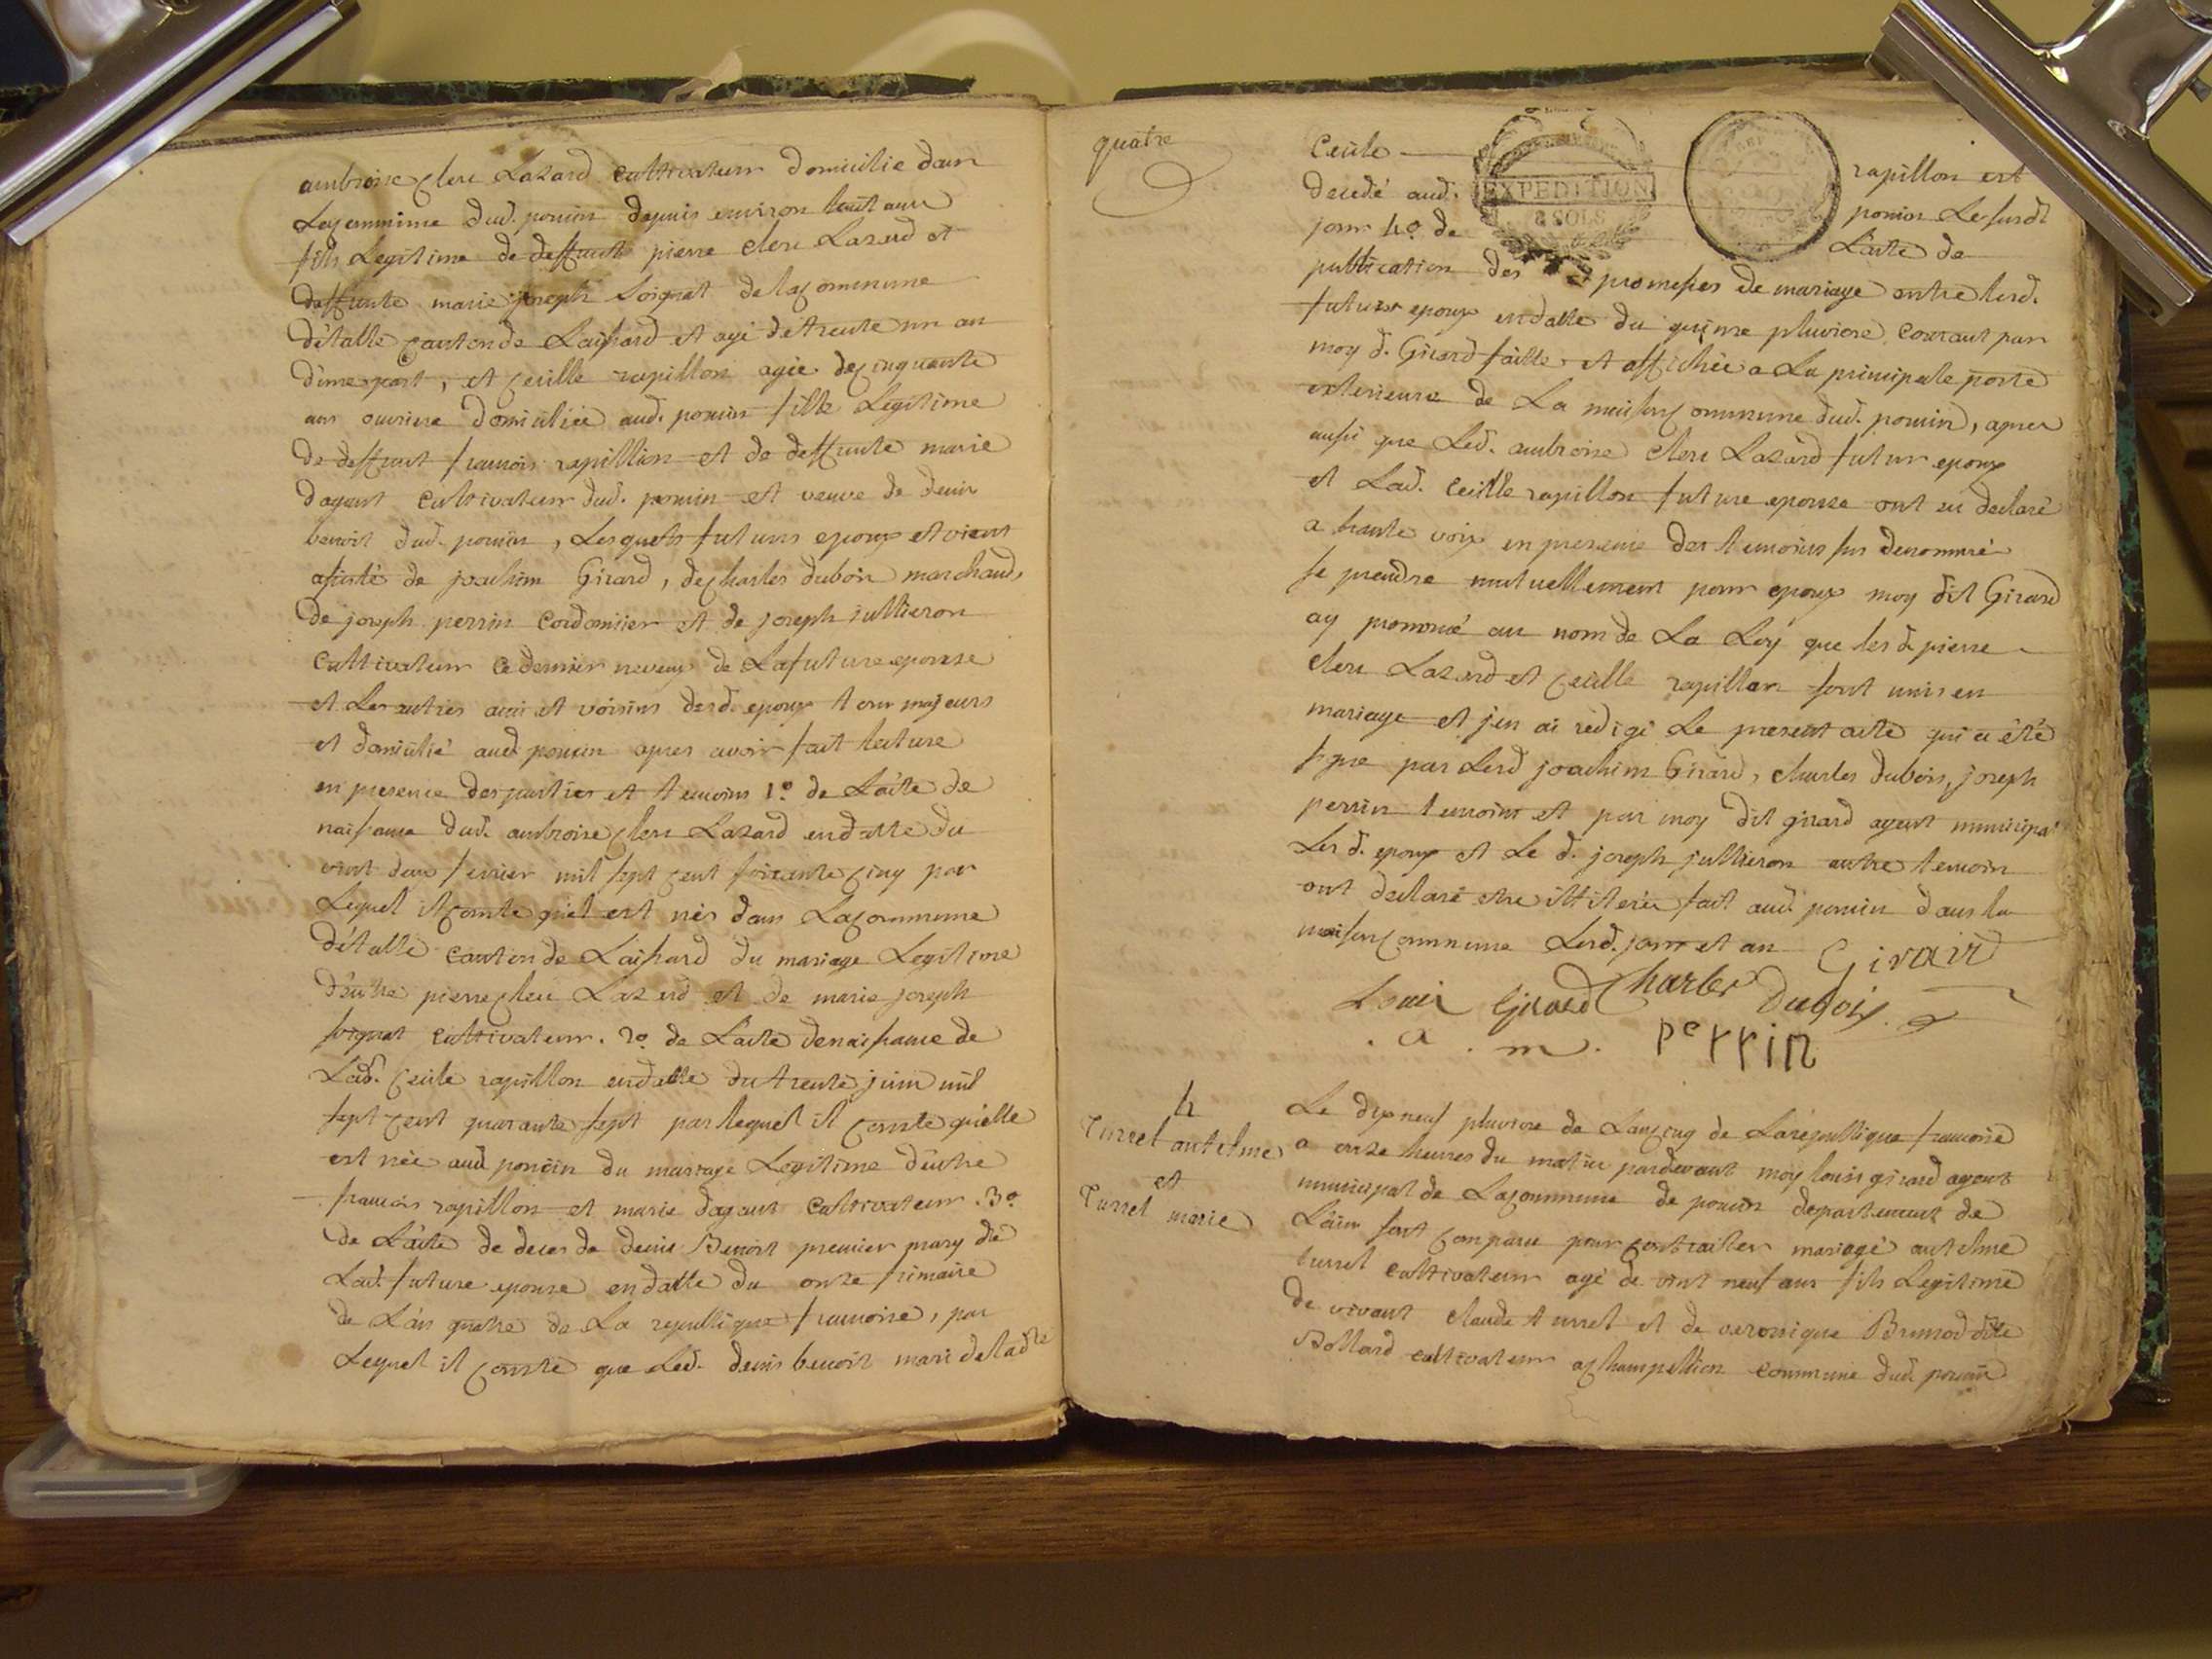 ambroise clerc Lazard cultivateur domicilié dans
la commune dud. poncin depuis environ huit ans
fils Legitime de deffunt pierre clerc Lazard et
deffunte marie joseph Soignat de la commune
d'étable canton de Laissard et agé de trente un an
d'une part, et Cecille rapillon agée de cinquante
ans ouvriere domiciliée aud. poncin fille Legitime
de deffunt francois rapillion et de deffunte marie
dagant cultivateur dud. poncin et veuve de denis
benoit dud. poncin, Lesquels futurs epoux etoient
assisté de joachim Girard, de charles dubois marchand,
de joseph perrin cordonnier et de joseph jullieron
cultivateur ce dernier neveux de La future epouse
et Les autres amis et voisins desd. epoux tous majeurs
et domicilié aud poncin apres avoir fait lecture
en presence des parties et temoins 1o. de L'acte de
naissance dud. ambroise clerc Lazard en datte du
vint deux fevrier mil sept cent soixante cinq par
Lequel il conste qu'il est nés dans La commune
d'étable canton de Laissard du mariage Legitime
d'entre pierre clerc Lazard et de marie joseph
soignat cultivateur. 2o. de L'acte de naissance de
Lad. Cecile rapillon en datte du trente juin mil
sept cent quarante sept par lequel il conste qu'elle
est née aud poncin du mariage Legitime d'entre
francois rapillon et marie dagant cultivateur. 3o.
de L'acte de deces de denis Benoit premier mary de
Lad. future epouse en datte du onze frimaire
de L'an quatre de La republique francoise, par
Lequel il conste que Led. denis benoit mari de ladte
quatre
Cecile rapillon est
decedé aud. poncin Le susdt
jour 4o. de L'acte de
EXPEDITION
8 SOLS
publication des promesses de mariage entre lesd.
futurs epoux en datte du quinze pluviose courant par
moy d. Girard faitte et affichée a La principale porte
exterieure de La maison commune dud. poncin, apres
aussi que Led. ambroise clerc Lazard futur epoux
et Lad. Cecille rapillon future epouse ont eu declaré
a haute voix en presence des temoins sus denommé
se prendre mutuellement pour epoux moy dit Girard
ay prononcé au nom de La Loy que les d. pierre
clerc Lazard et Cecille rapillon sont unis en
mariage et j'en ai redigé Le present acte qui a été
signe par Lesd joachim Girard, charles dubois, joseph
perrin temoins et par moy dit girard agent municipal
Les d. epoux et Le d. joseph jullieron autre temoin
ont declaré etre illiterée fait aud. poncin dans la
maison commune Lesd. jour et an
Girard
Louis Girard Charles Dubois
a . m . perrin
4
Turrel antelme
et
Turrel marie
Le dix neuf pluviose de L'an cinq de La republique francoise
a onze heures du matin pardevant moy louis girard agent
municipal de La commune de poncin departement de
L'ain sont comparu pour contracter mariage antelme
turrel cultivateur agé de vint neuf ans fils Legitime
de vivant claude turrel et de veronique Brunod dite
Bollard cultivateur a champellion commune dud. poncin